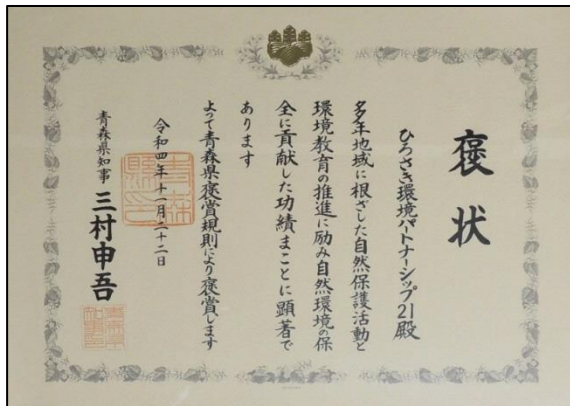 褒状
ひろさき環境パートナーシップ21殿
多年地域に根ざした自然保護活動と
環境教育の推進に励み自然環境の保
全に貢献した功績まことに顕著で
あります
よって青森県褒賞規則により褒賞します
令和四年十一月二十二日
青森県知事 三村申吾